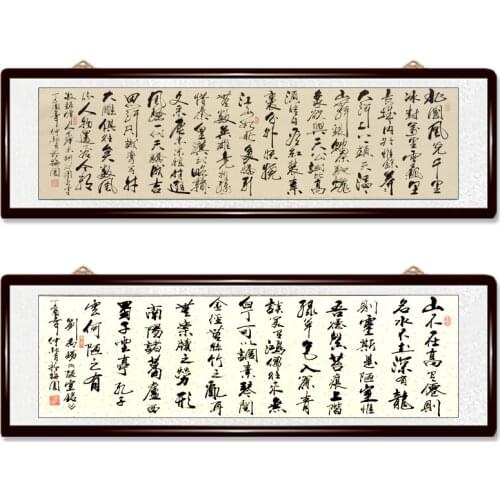 北國風光千里
冰封萬里雪飄望
長城内外惟餘莽莽
大河上下頓失滔滔
山舞銀蛇原馳蠟
象欲與天公試比高
須晴日看紅裝素
裹分外妖嬈
江山如此多嬌引
無數英雄競折腰
惜秦皇漢武略輸
文采唐宗宋祖稍遜
風騷一代天驕成吉
思汗只識彎弓射
大雕俱往矣數風
流人物還看今朝
山不在高有僊則
名水不在深有龍
則靈斯是陋室惟
吾德馨苔痕上階
綠草色入簾青
談笑有鴻儒往來無
白丁可以調素琴閱
金經無絲竹之亂耳
無案牘之勞形
南陽諸葛廬西
蜀子雲亭孔子
雲何陋之有
劉禹錫陋室銘